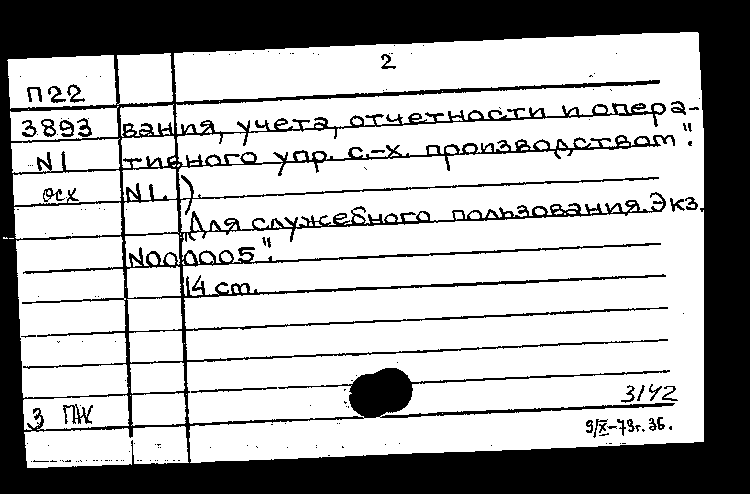 2
П22
3893 вания, учета, отчетности и опера-
N1 тивного упр. с.-х. производством".
осх N1.).
"Для служебного пользования. Экз.
N000005".
14 ст.
3142
3 ПЖ